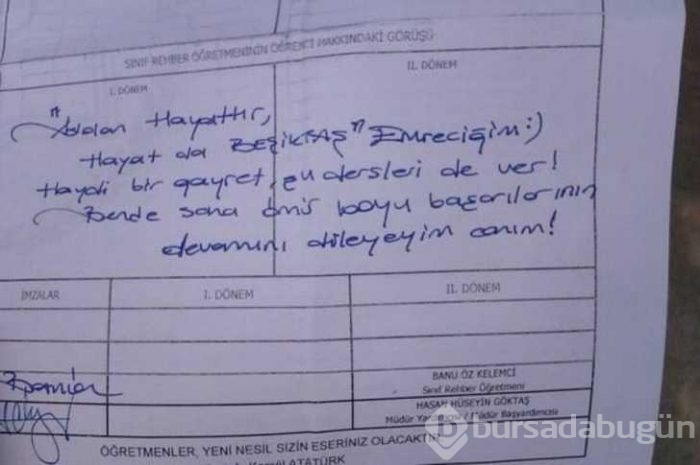 SINIF REHBER ÖĞRETMENİNİN ÖĞRENCİ HAKKINDAKİ GÖRÜŞÜ
I. DÖNEM
II. DÖNEM
Hayattır,
Hayat da BEŞİKTAŞ" Emreciğim:)
Haydi bir gayret, şu dersleri de ver!
Bende sana ömür boyu başarılarının
devamını dileyeyim canım!
İMZALAR
I. DÖNEM
II. DÖNEM
BANU ÖZ KELEMCİ
Sınıf Rehber Öğretmeni
HASAN HÜSEYİN GÖKTAŞ
Müdür Yardımcısı / Müdür Başyardımcısı
ÖĞRETMENLER, YENİ NESİL SİZİN ESERİNİZ OLACAKTIR
ATATÜRK
bursadabugün